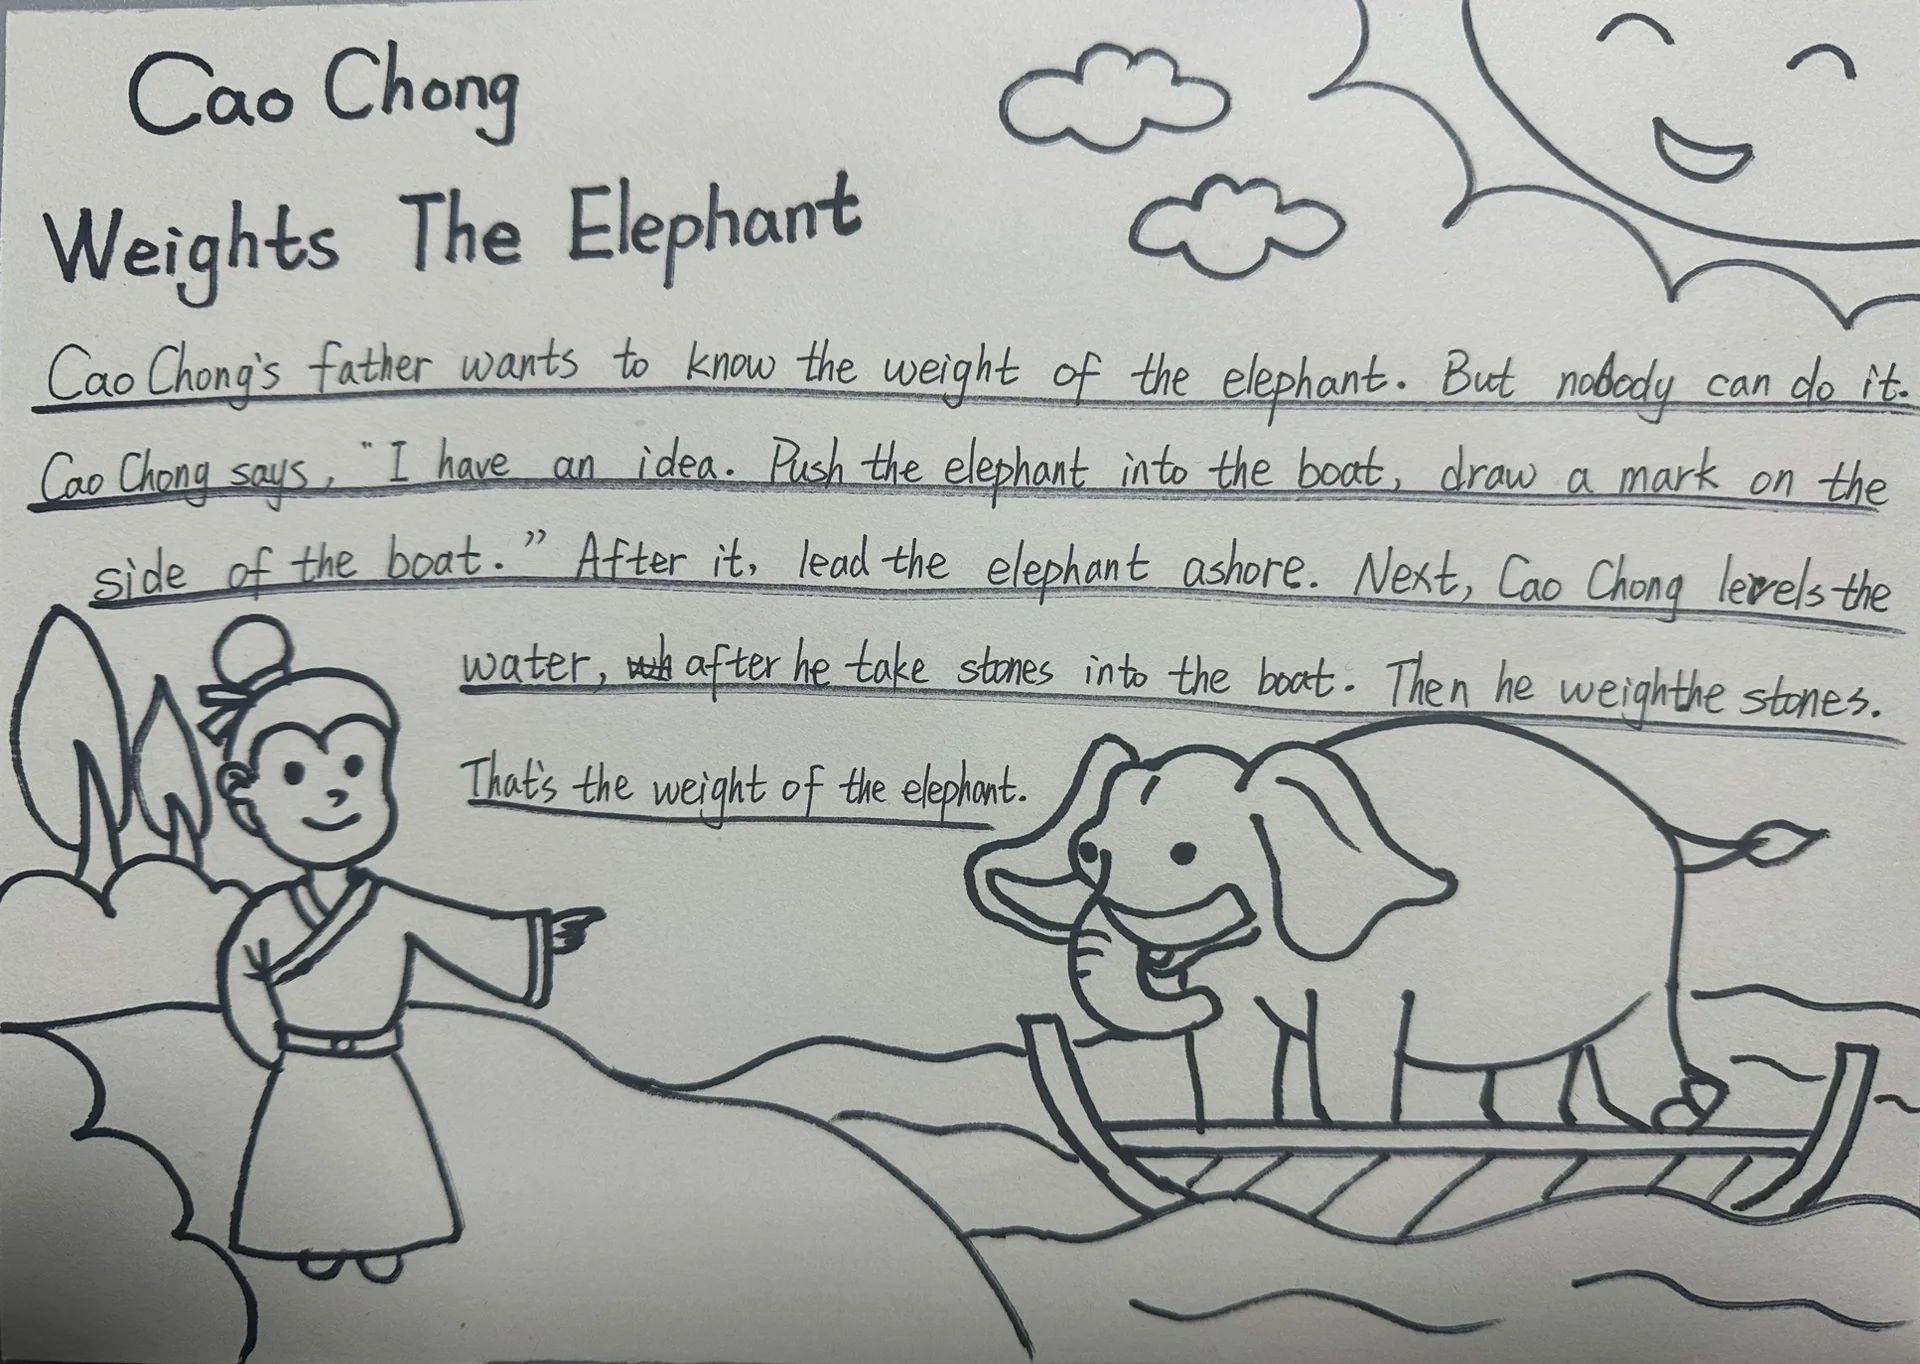 Cao Chong
Weights The Elephant
Cao Chong's father wants to know the weight of the elephant. But nobody can do it.
Cao Chong says, "I have an idea. Push the elephant into the boat, draw a mark on the
side of the boat." After it, lead the elephant ashore. Next, Cao Chong levels the
water, after he take stones into the boat. Then he weigh the stones.
That's the weight of the elephant.